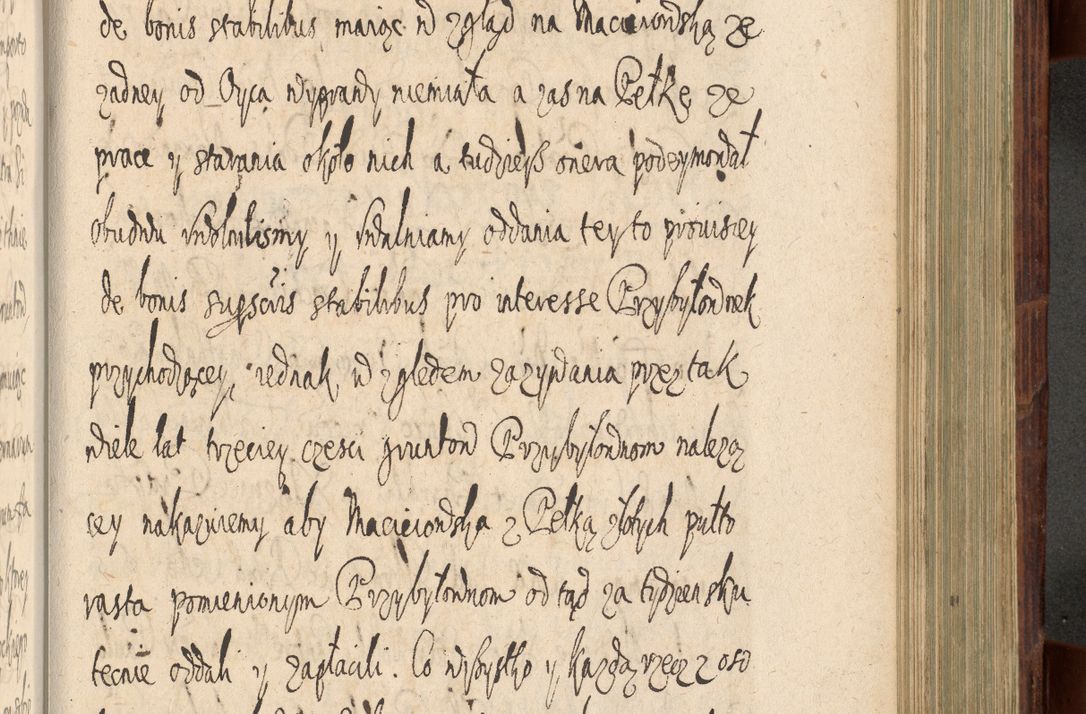 de bonis stabilibus maiąc wzgląd na Macieiowską ze
zadney od Oyca wyprawy niemiała a zas na Petkę ze
prace y starania około nich a tudziesz onera podeymował
obudwu uwolnilismy y uwalniamy oddania teyto prowisiey
de bonis supscris stabilibus pro interesse Przybyłowek
przychodzącey, iednak, wzgledem zazywania przeztak
wiele lat trzeciey czesci gruntow Przybyłownom nalezą
cey nakazuiemy aby Macieiowska z Petką złotych pułto
rasta pomienionym Przybyłownom od tąd za tydzien sku
tecnie oddali y zapłacili. Co wszystko y kazdą rzecz z oso